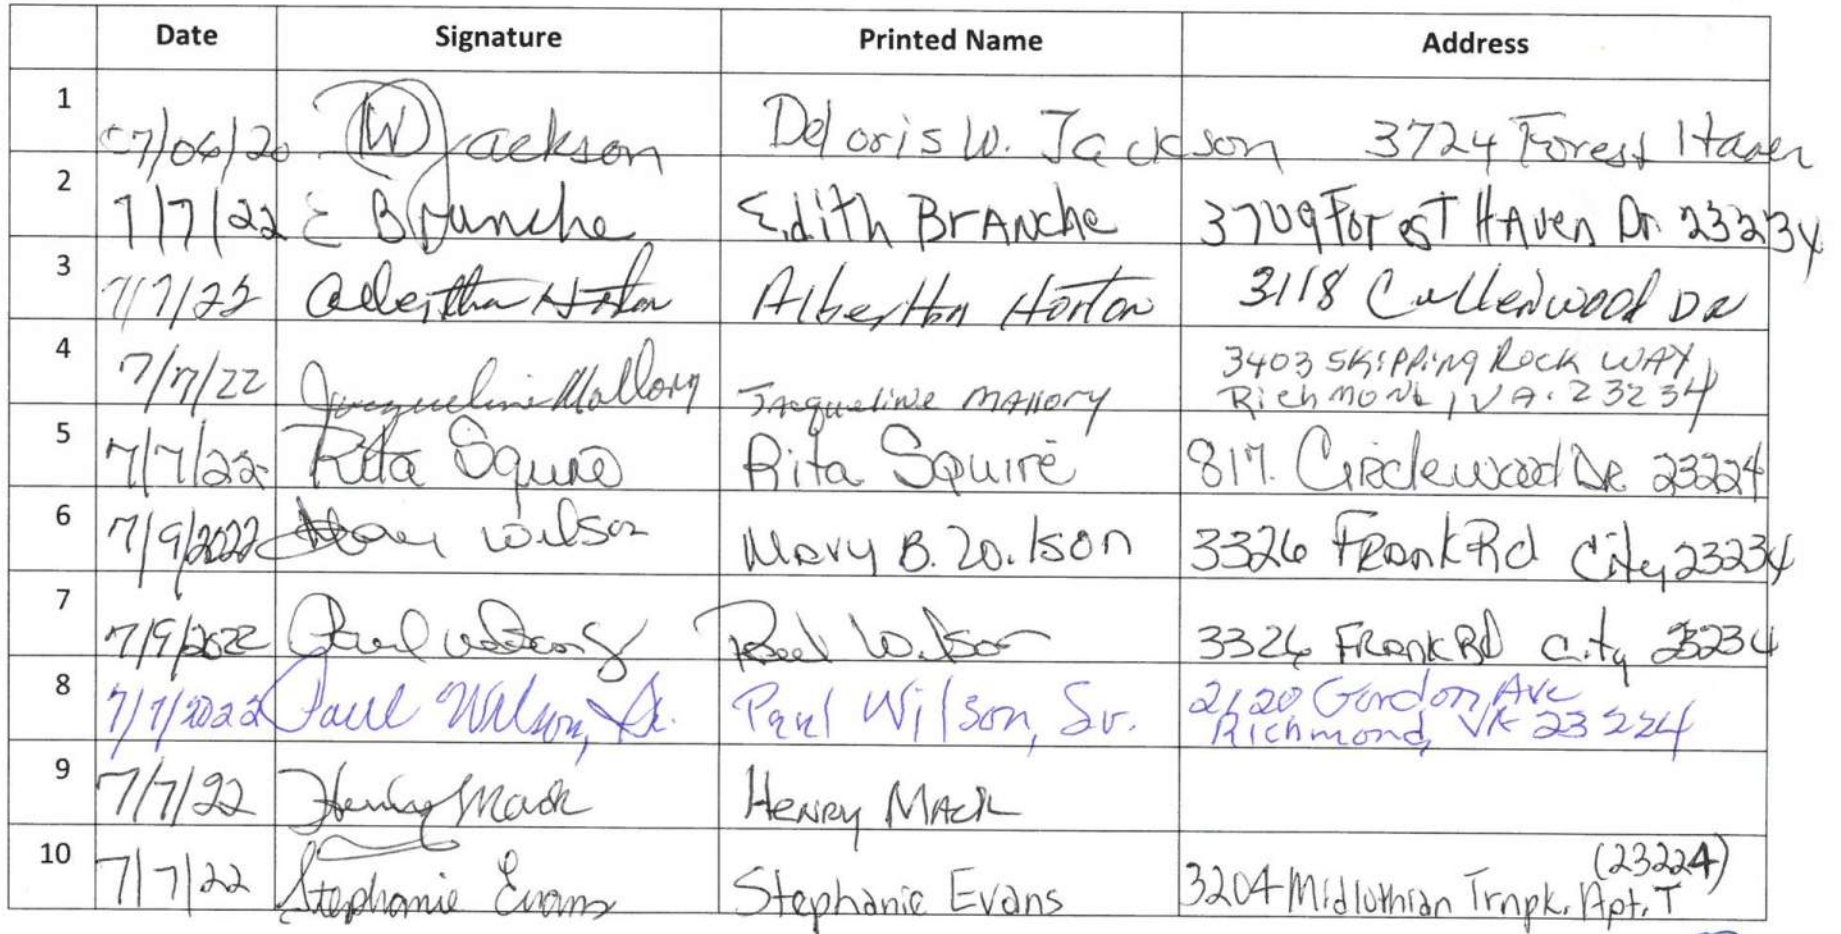 Date Signature Printed Name Address
1 07/06/20 DW Jackson Deloris W. Jackson 3724 Forest Haven
2 7/7/22 E Branche Edith BrANche 3709 Forest HAven Dr. 23234
3 7/7/22 Albertha Horton Albertha Horton 3118 Cullenwood DR
4 7/7/22 Jacqueline Mallory Jacqueline MAllory 3403 SKipping Rock WAY,
Richmond, VA. 23234
5 7/7/22 Rita Squire Rita Squire 817. Circlewood DR 23224
6 7/9/2022 Mary Wilson Mary B. Wilson 3326 FRankRd City 23234
7 7/9/2022 Paul Wilson Paul Wilson 3326 FRankRd City 23234
8 7/7/2022 Paul Wilson, Sr. Paul Wilson, Sr. 2120 Gordon Ave
Richmond, VA 23224
9 7/7/22 Henry Mack HENRY MACK
10 7/7/22 Stephanie Evans Stephanie Evans 3204 Midlothian Trnpk. Apt. T
(23224)